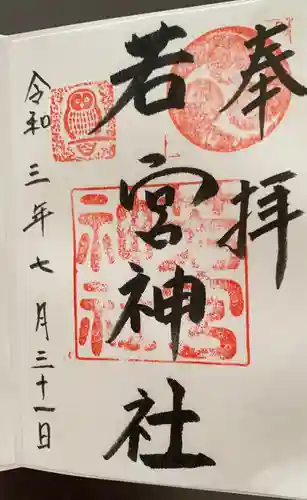 奉拝
若宮神社
令和三年七月三十一日
若宮神社